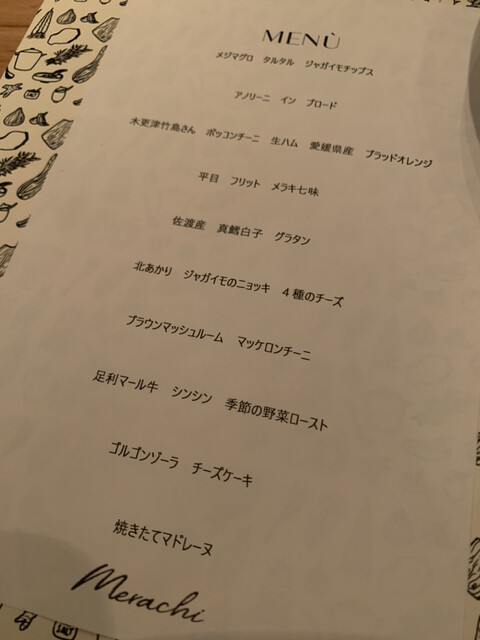 MENÙ
メジマグロ タルタル ジャガイモチップス
アノリーニ イン ブロード
木更津竹島さん ボッコンチーニ 生ハム 愛媛県産 ブラッドオレンジ
平目 フリット メラキ七味
佐渡産 真鱈白子 グラタン
北あかり ジャガイモのニョッキ 4種のチーズ
ブラウンマッシュルーム マッケロンチーニ
足利マール牛 シンシン 季節の野菜ロースト
ゴルゴンゾーラ チーズケーキ
焼きたてマドレーヌ
Merachi
SALT